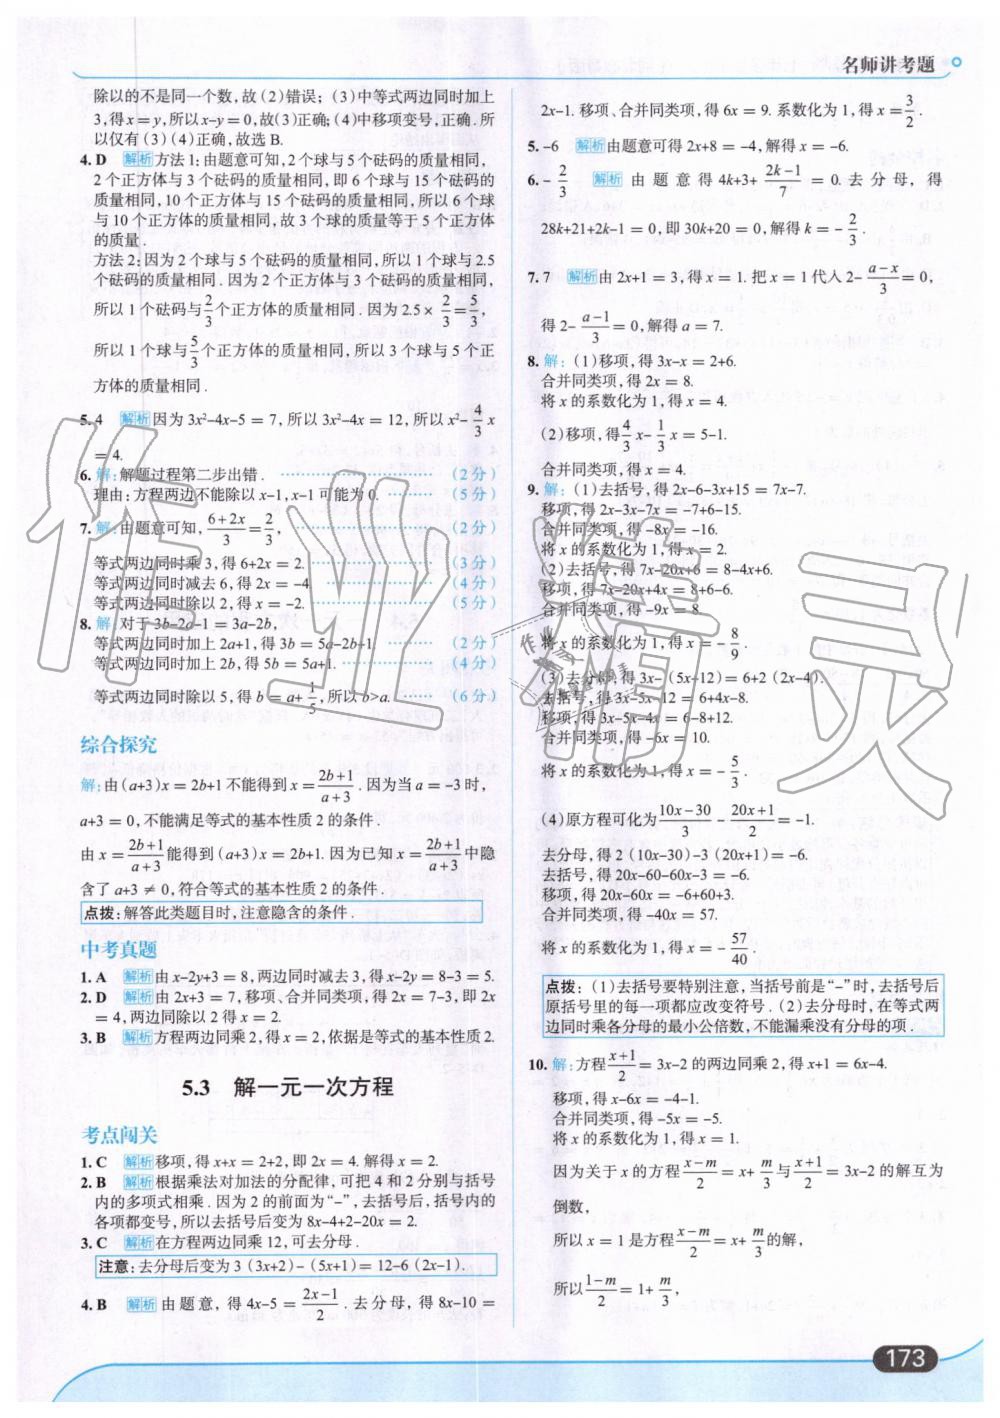 名师讲考题
除以的不是同一个数,故(2)错误;(3)中等式两边同时加上
3,得x=y,所以x-y=0,故(3)正确;(4)中移项变号,正确.所
以仅有(3)(4)正确,故选B.
4. D 解析 方法1:由题意可知,2个球与5个砝码的质量相同,
2个正方体与3个砝码的质量相同,即6个球与15个砝码的
质量相同,10个正方体与15个砝码的质量相同,所以6个球
与10个正方体的质量相同,故3个球的质量等于5个正方体
的质量.
方法2:因为2个球与5个砝码的质量相同,所以1个球与2.5
个砝码的质量相同.因为2个正方体与3个砝码的质量相同,
所以1个砝码与2/3个正方体的质量相同.因为2.5×2/3=5/3,
所以1个球与5/3个正方体的质量相同,所以3个球与5个正
方体的质量相同.
5. 4 解析 因为3x²-4x-5=7,所以3x²-4x=12,所以x²-4/3x
=4.
6. 解:解题过程第二步出错. (2分)
理由:方程两边不能除以x-1,x-1可能为0. (5分)
7. 解:由题意可知,(6+2x)/3=2/3, (2分)
等式两边同时乘3,得6+2x=2. (3分)
等式两边同时减去6,得2x=-4. (4分)
等式两边同时除以2,得x=-2. (5分)
8. 解:对于3b-2a-1=3a-2b,
等式两边同时加上2a+1,得3b=5a-2b+1. (2分)
等式两边同时加上2b,得5b=5a+1. (4分)
等式两边同时除以5,得b=a+1/5,所以b>a. (6分)
综合探究
解:由(a+3)x=2b+1不能得到x=(2b+1)/(a+3).因为当a=-3时,
a+3=0,不能满足等式的基本性质2的条件.
由x=(2b+1)/(a+3)能得到(a+3)x=2b+1.因为已知x=(2b+1)/(a+3)中隐
含了a+3≠0,符合等式的基本性质2的条件.
点拨:解答此类题目时,注意隐含的条件.
中考真题
1. A 解析 由x-2y+3=8,两边同时减去3,得x-2y=8-3=5.
2. D 解析 由2x+3=7,移项、合并同类项,得2x=7-3,即2x
=4,两边同除以2得x=2.
3. B 解析 方程两边同乘2,得x=2,依据是等式的基本性质2.
5.3 解一元一次方程
考点闯关
1. C 解析 移项,得x+x=2+2,即2x=4.解得x=2.
2. B 解析 根据乘法对加法的分配律,可把4和2分别与括号
内的多项式相乘.因为2的前面为“-”,去括号后,括号内的
各项都变号,所以去括号后变为8x-4+2-20x=2.
3. C 解析 在方程两边同乘12,可去分母.
注意:去分母后变为3(3x+2)-(5x+1)=12-6(2x-1).
4. B 解析 由题意,得4x-5=(2x-1)/2.去分母,得8x-10=
2x-1.移项、合并同类项,得6x=9.系数化为1,得x=3/2.
5. -6 解析 由题意可得2x+8=-4,解得x=-6.
6. -2/3 解析 由题意得4k+3+(2k-1)/7=0.去分母,得
28k+21+2k-1=0,即30k+20=0,解得k=-2/3.
7. 7 解析 由2x+1=3,得x=1.把x=1代入2-(a-x)/3=0,
得2-(a-1)/3=0,解得a=7.
8. 解:(1)移项,得3x-x=2+6.
合并同类项,得2x=8.
将x的系数化为1,得x=4.
(2)移项,得4/3x-1/3x=5-1.
合并同类项,得x=4.
9. 解:(1)去括号,得2x-6-3x+15=7x-7.
移项,得2x-3x-7x=-7+6-15.
合并同类项,得-8x=-16.
将x的系数化为1,得x=2.
(2)去括号,得7x-20x+6=8-4x+6.
移项,得7x-20x+4x=8+6-6.
合并同类项,得-9x=8.
将x的系数化为1,得x=-8/9.
(3)去分母,得3x-(5x-12)=6+2(2x-4).
去括号,得3x-5x+12=6+4x-8.
移项,得3x-5x-4x=6-8+12.
合并同类项,得-6x=10.
将x的系数化为1,得x=-5/3.
(4)原方程可化为(10x-30)/3-(20x+1)/2=-1.
去分母,得2(10x-30)-3(20x+1)=-6.
去括号,得20x-60-60x-3=-6.
移项,得20x-60x=-6+60+3.
合并同类项,得-40x=57.
将x的系数化为1,得x=-57/40.
点拨:(1)去括号要特别注意,当括号前是“-”时,去括号后
原括号里的每一项都应改变符号.(2)去分母时,在等式两
边同时乘各分母的最小公倍数,不能漏乘没有分母的项.
10. 解:方程(x+1)/2=3x-2的两边同乘2,得x+1=6x-4.
移项,得x-6x=-4-1.
合并同类项,得-5x=-5.
将x的系数化为1,得x=1.
因为关于x的方程(x-m)/2=x+m/3与(x+1)/2=3x-2的解互为
倒数,
所以x=1是方程(x-m)/2=x+m/3的解,
所以(1-m)/2=1+m/3,
173
作业精灵